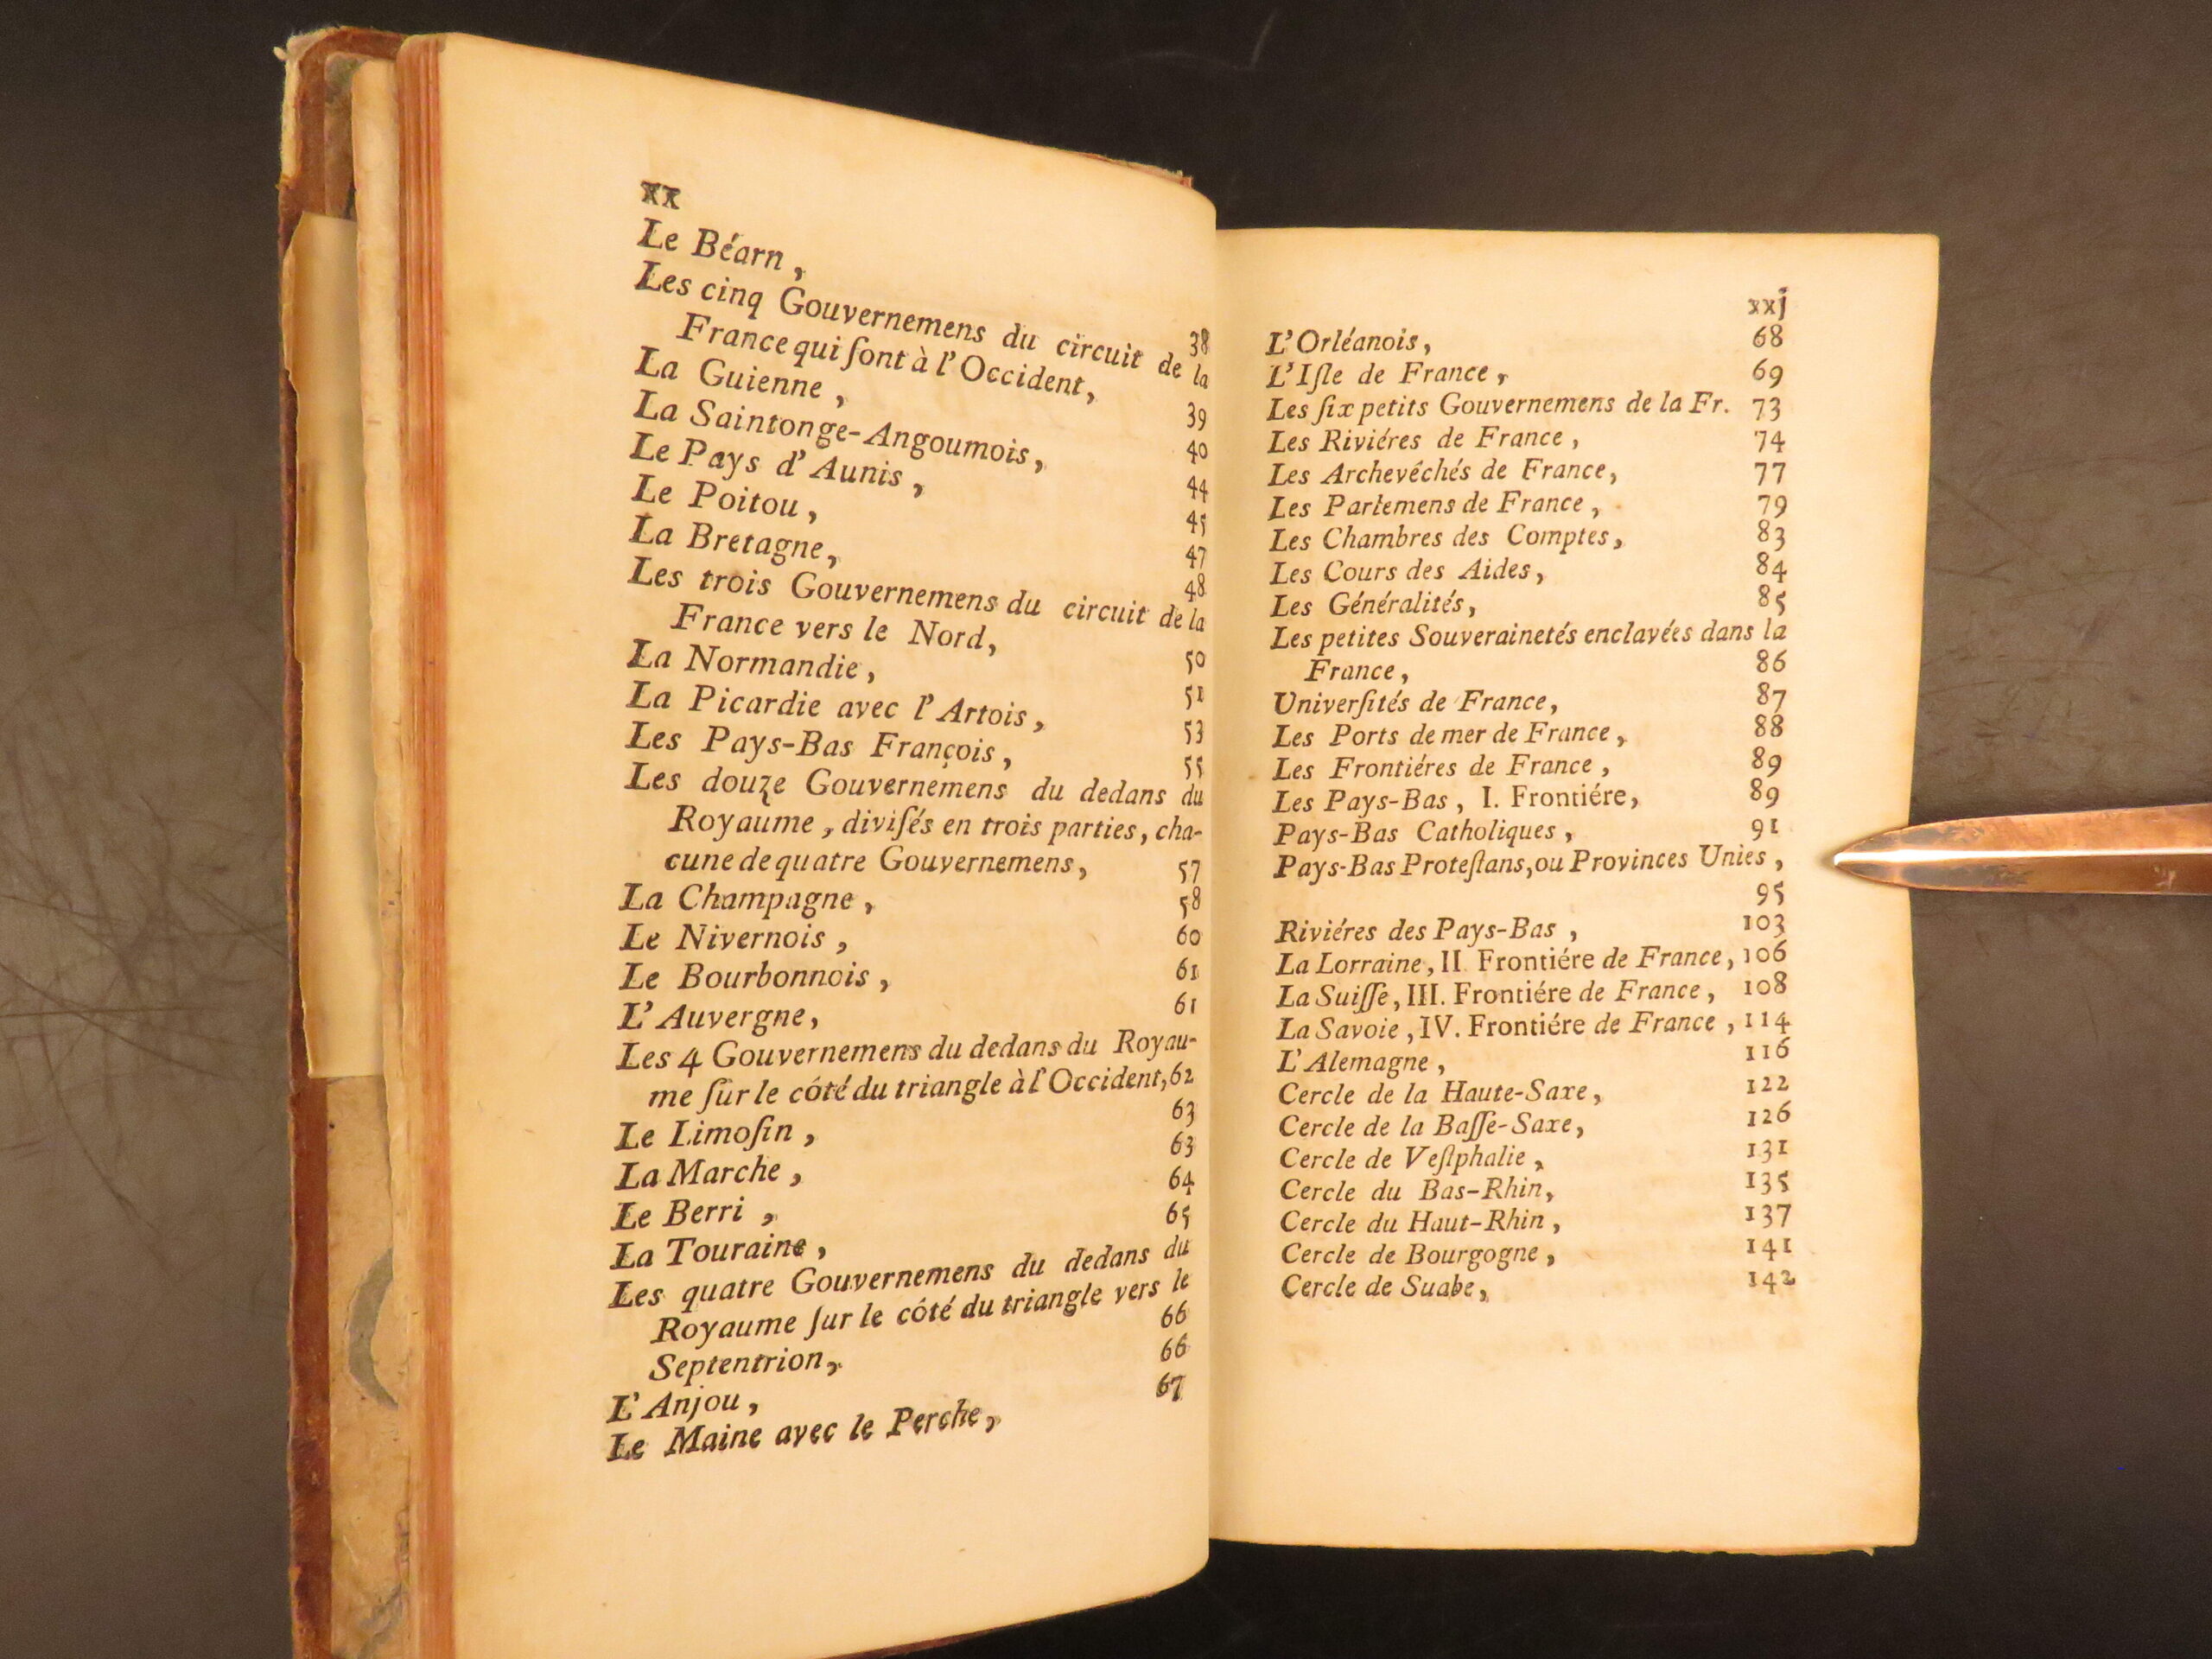 xx
Le Béarn, 38
Les cinq Gouvernemens du circuit de la
France qui ſont à l'Occident, 39
La Guienne, 40
La Saintonge-Angoumois, 44
Le Pays d'Aunis, 45
Le Poitou, 47
La Bretagne, 48
Les trois Gouvernemens du circuit de la
France vers le Nord, 50
La Normandie, 51
La Picardie avec l'Artois, 53
Les Pays-Bas François, 55
Les douze Gouvernemens du dedans du
Royaume, diviſés en trois parties, cha-
cune de quatre Gouvernemens, 57
La Champagne, 58
Le Nivernois, 60
Le Bourbonnois, 61
L'Auvergne, 61
Les 4 Gouvernemens du dedans du Royau-
me ſur le côté du triangle à l'Occident, 62
Le Limoſin, 63
La Marche, 63
Le Berri, 64
La Touraine, 65
Les quatre Gouvernemens du dedans du
Royaume ſur le côté du triangle vers le
Septentrion, 66
L'Anjou, 66
Le Maine avec le Perche, 67
xxj
L'Orléanois, 68
L'Iſle de France, 69
Les ſix petits Gouvernemens de la Fr. 73
Les Riviéres de France, 74
Les Archevêchés de France, 77
Les Parlemens de France, 79
Les Chambres des Comptes, 83
Les Cours des Aides, 84
Les Généralités, 85
Les petites Souverainetés enclavées dans la
France, 86
Univerſités de France, 87
Les Ports de mer de France, 88
Les Frontiéres de France, 89
Les Pays-Bas, I. Frontiére, 89
Pays-Bas Catholiques, 91
Pays-Bas Proteſtans, ou Provinces Unies,
95
Riviéres des Pays-Bas, 103
La Lorraine, II. Frontiére de France, 106
La Suiſſe, III. Frontiére de France, 108
La Savoie, IV. Frontiére de France, 114
L'Alemagne, 116
Cercle de la Haute-Saxe, 122
Cercle de la Baſſe-Saxe, 126
Cercle de Veſtphalie, 131
Cercle du Bas-Rhin, 135
Cercle du Haut-Rhin, 137
Cercle de Bourgogne, 141
Cercle de Suabe, 142